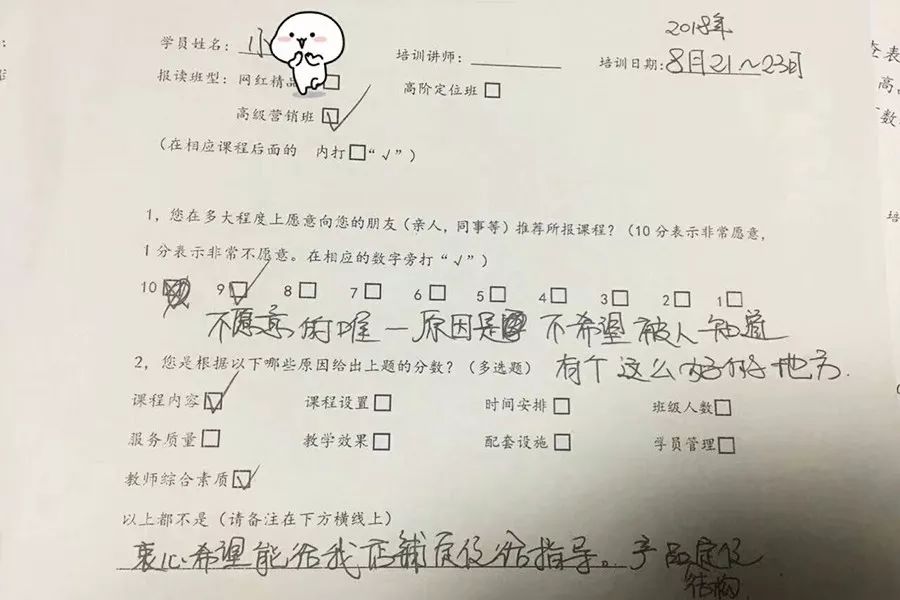 2018年
学员姓名：小
培训讲师：
培训日期：8月21～23日
报读班型：网红精品 □ 高阶定位班 □
高级营销班 ☑
（在相应课程后面的 内打□“√”）
1，您在多大程度上愿意向您的朋友（亲人，同事等）推荐所报课程？（10分表示非常愿意，
1分表示非常不愿意。在相应的数字旁打“√”）
10 9☑ 8□ 7□ 6□ 5□ 4□ 3□ 2□ 1□
不愿意的唯一原因是 不希望被人知道
2，您是根据以下哪些原因给出上题的分数？（多选题） 有个这么好的地方.
课程内容☑ 课程设置□ 时间安排□ 班级人数□
服务质量□ 教学效果□ 配套设施□ 学员管理□
教师综合素质☑
以上都不是（请备注在下方横线上）
衷心希望能给我店铺定位给指导。产品定位
结构